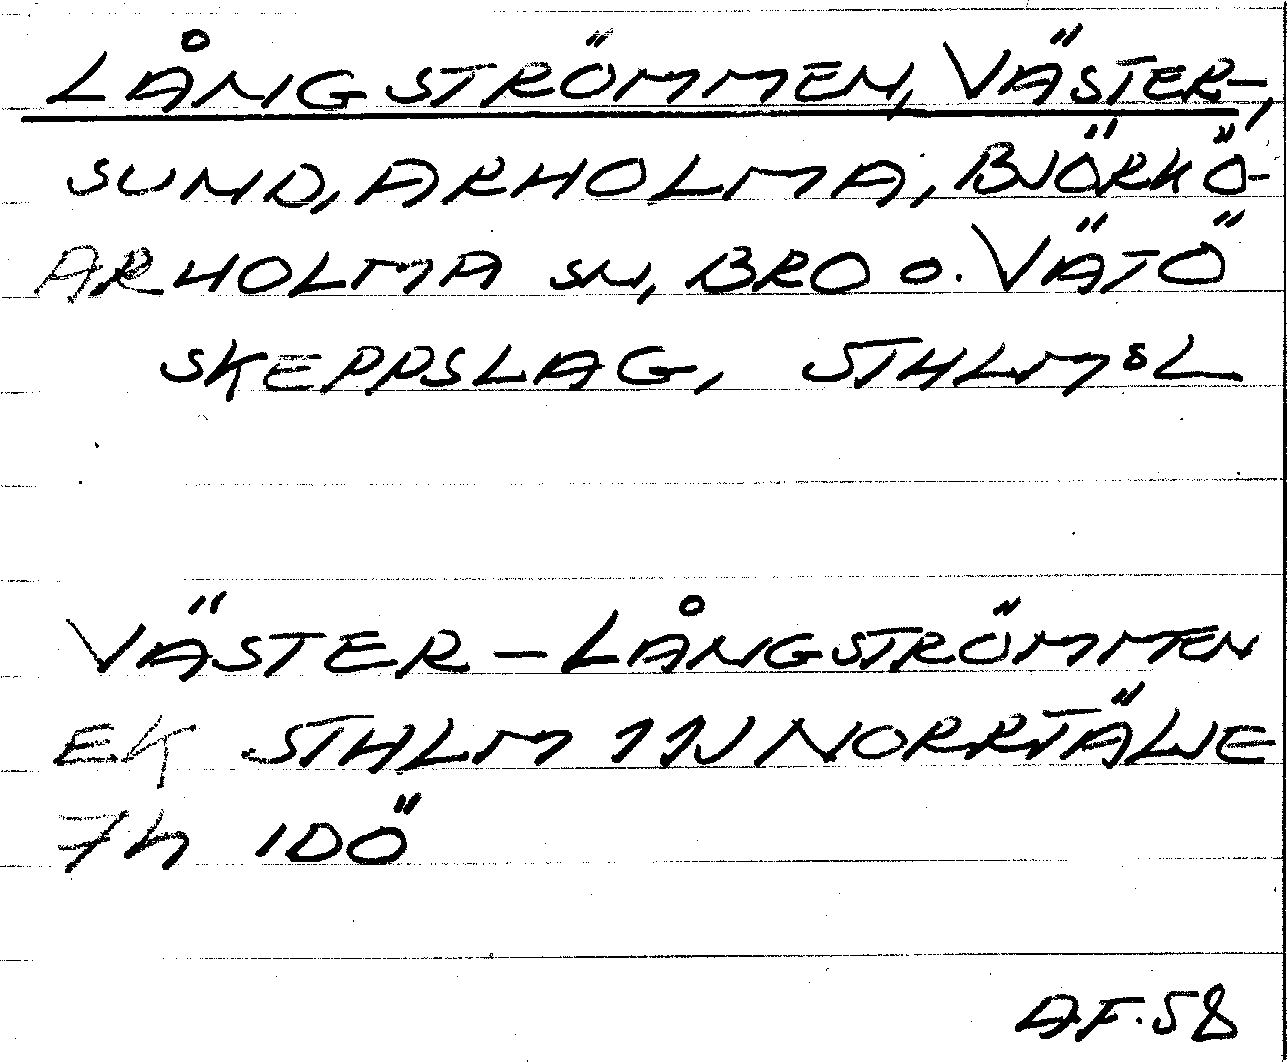 LÅNGSTRÖMMEN, VÄSTER-,
SUND, ARHOLMA, BJÖRKÖ-
ARHOLMA SN, BRO O. VÄTÖ
SKEPPSLAG, STHLMSL
VÄSTER-LÅNGSTRÖMMEN
EK STHLM 11J NORRTÄLJE
7h IDÖ
A.F. 58